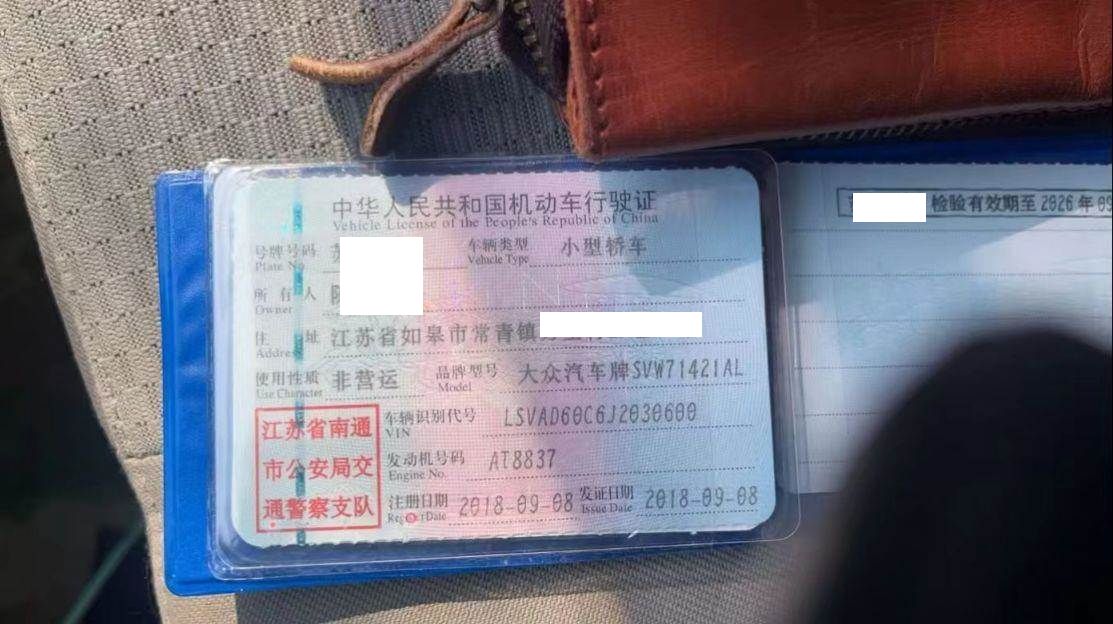 中华人民共和国机动车行驶证
Vehicle License of the People's Republic of China
号牌号码 苏
Plate No.
车辆类型 小型轿车
Vehicle Type
所有人
Owner
住址 江苏省如皋市常青镇
Address
使用性质 非营运
Use Character
品牌型号 大众汽车牌SVW71421AL
Model
江苏省南通
市公安局交
通警察支队
车辆识别代号 LSVAD60C6J2030600
VIN
发动机号码 AT8837
Engine No.
注册日期 2018-09-08
Register Date
发证日期 2018-09-08
Issue Date
检验有效期至 2026 年 09